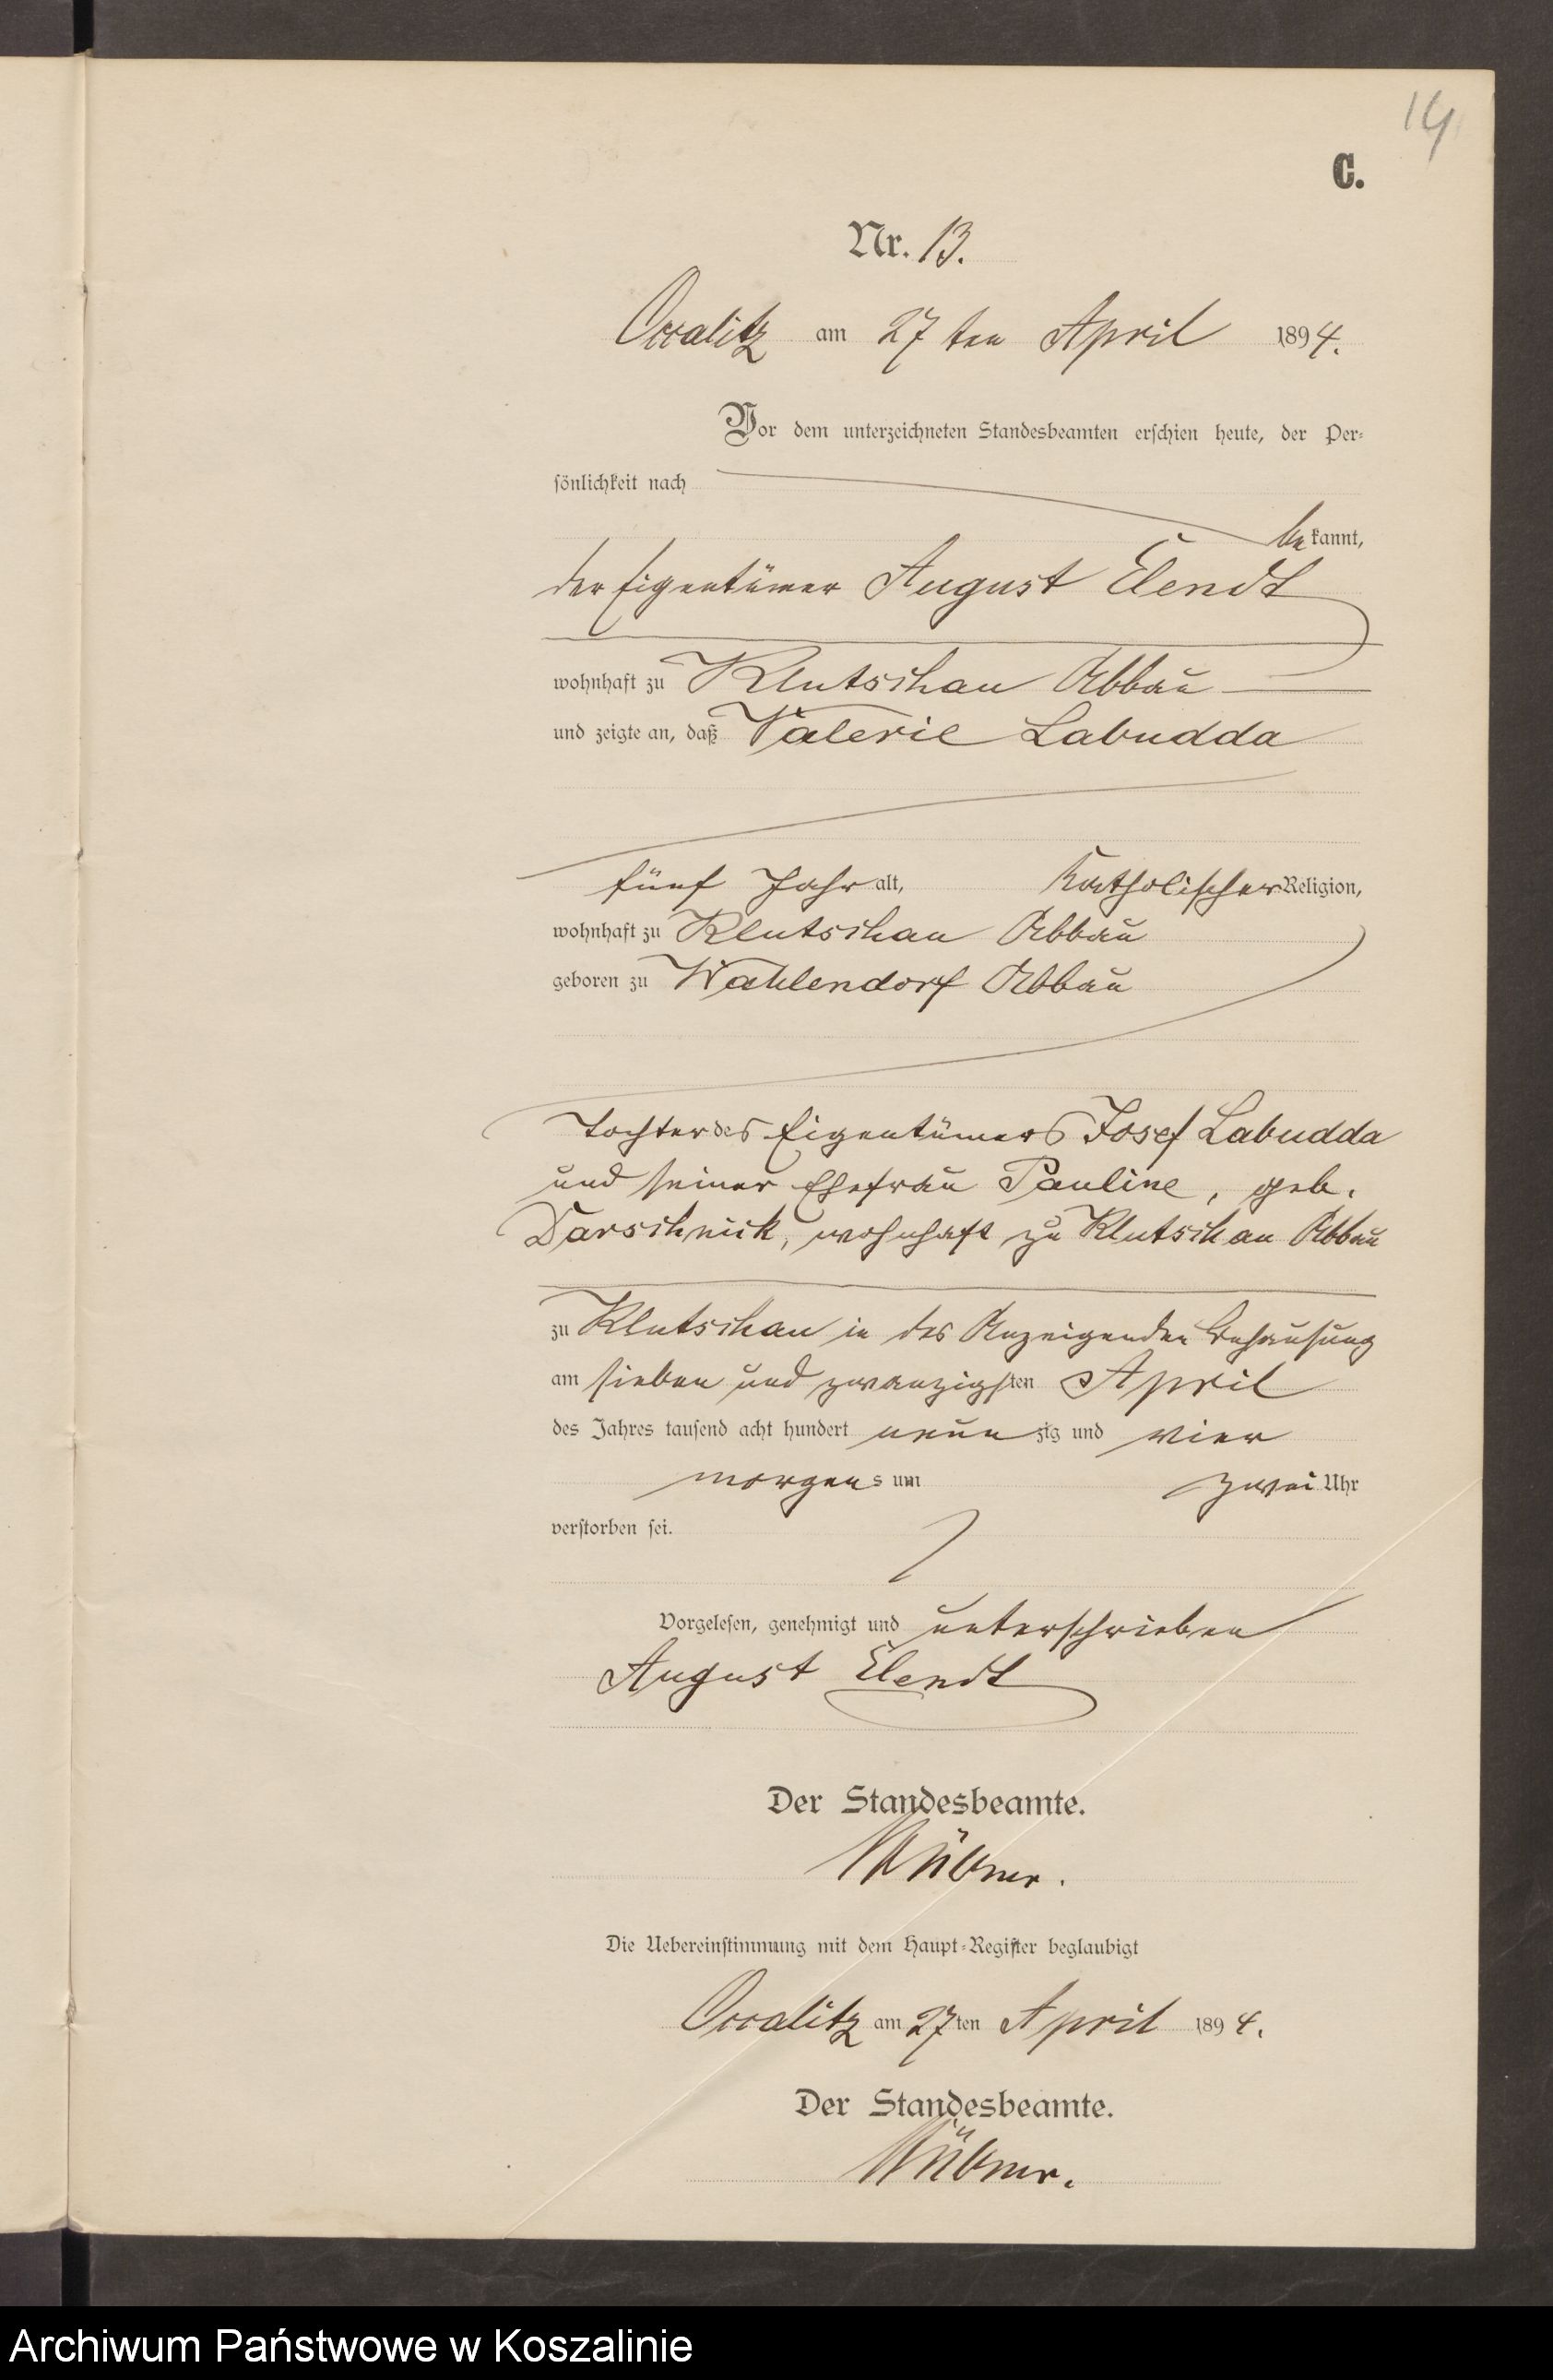 14
C.
Nr. 13.
Occalitz am 27 ten April 1894.
Vor dem unterzeichneten Standesbeamten erschien heute, der Per-
sönlichkeit nach
bekannt,
der Eigentümer August Elendt
wohnhaft zu Klutschau Abbau
und zeigte an, daß Valerie Labudda
fünf Jahr alt, katholischer Religion,
wohnhaft zu Klutschau Abbau
geboren zu Wahlendorf Abbau
Tochter des Eigentümers Josef Labudda
und seiner Ehefrau Pauline, geb.
Darschnick, wohnhaft zu Klutschau Abbau
zu Klutschau in des Anzeigenden Behausung
am sieben und zwanzigsten April
des Jahres tausend acht hundert neunzig und vier
morgens um zwei Uhr
verstorben sei.
Vorgelesen, genehmigt und unterschrieben
August Elendt
Der Standesbeamte.
Die Uebereinstimmung mit dem Haupt-Register beglaubigt
Occalitz am 27ten April 1894.
Der Standesbeamte.
Archiwum Państwowe w Koszalinie